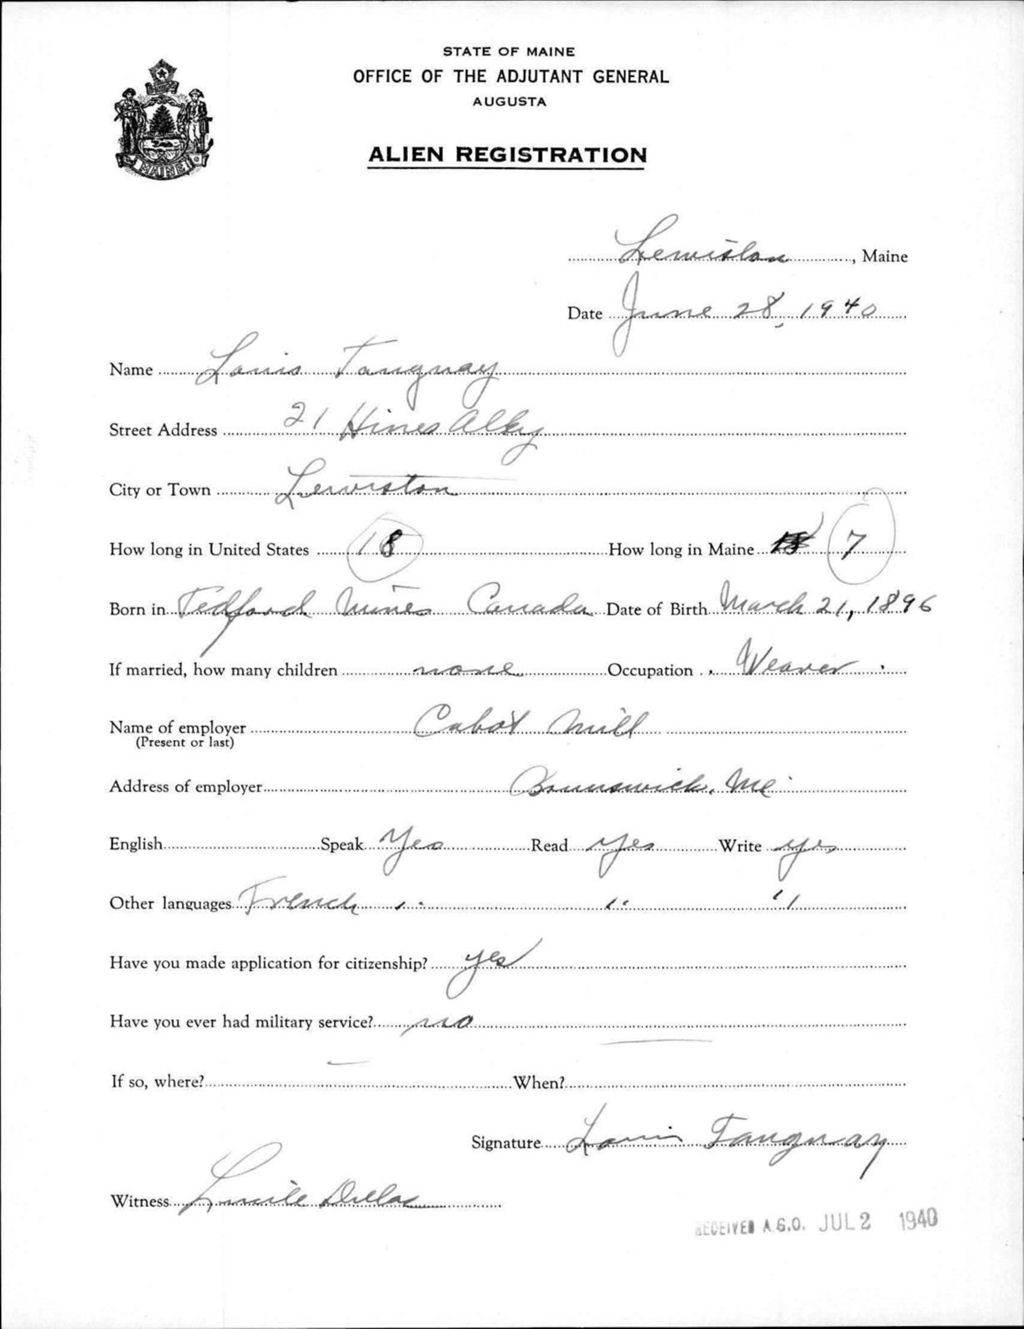 STATE OF MAINE
OFFICE OF THE ADJUTANT GENERAL
AUGUSTA
ALIEN REGISTRATION
MAINE
Lewiston, Maine
Date June 28, 1940
Name Louis Tanguay
Street Address 21 Hines Alley
City or Town Lewiston
How long in United States 18 How long in Maine 7
Born in Tedford Mines Canada Date of Birth March 21, 1896
If married, how many children none Occupation Weaver
Name of employer Cabot Mill
(Present or last)
Address of employer Brunswick, Me.
English Speak Yes Read Yes Write yes
Other languages French " " "
Have you made application for citizenship? yes
Have you ever had military service? no
If so, where? — When? —
Signature Louis Tanguay
Witness Lucile
RECEIVED A.G.O. JUL 2 1940